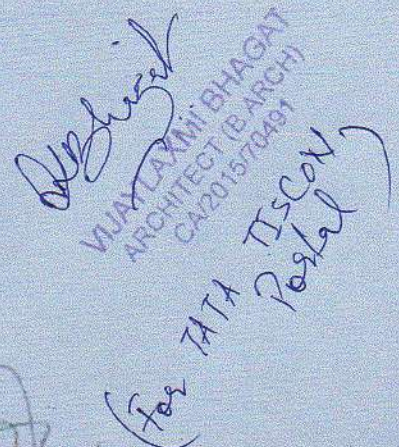 VIJAYLAXMI BHAGAT
ARCHITECT (B ARCH)
CA/2015/70491
(For TATA TISCON
Portal)